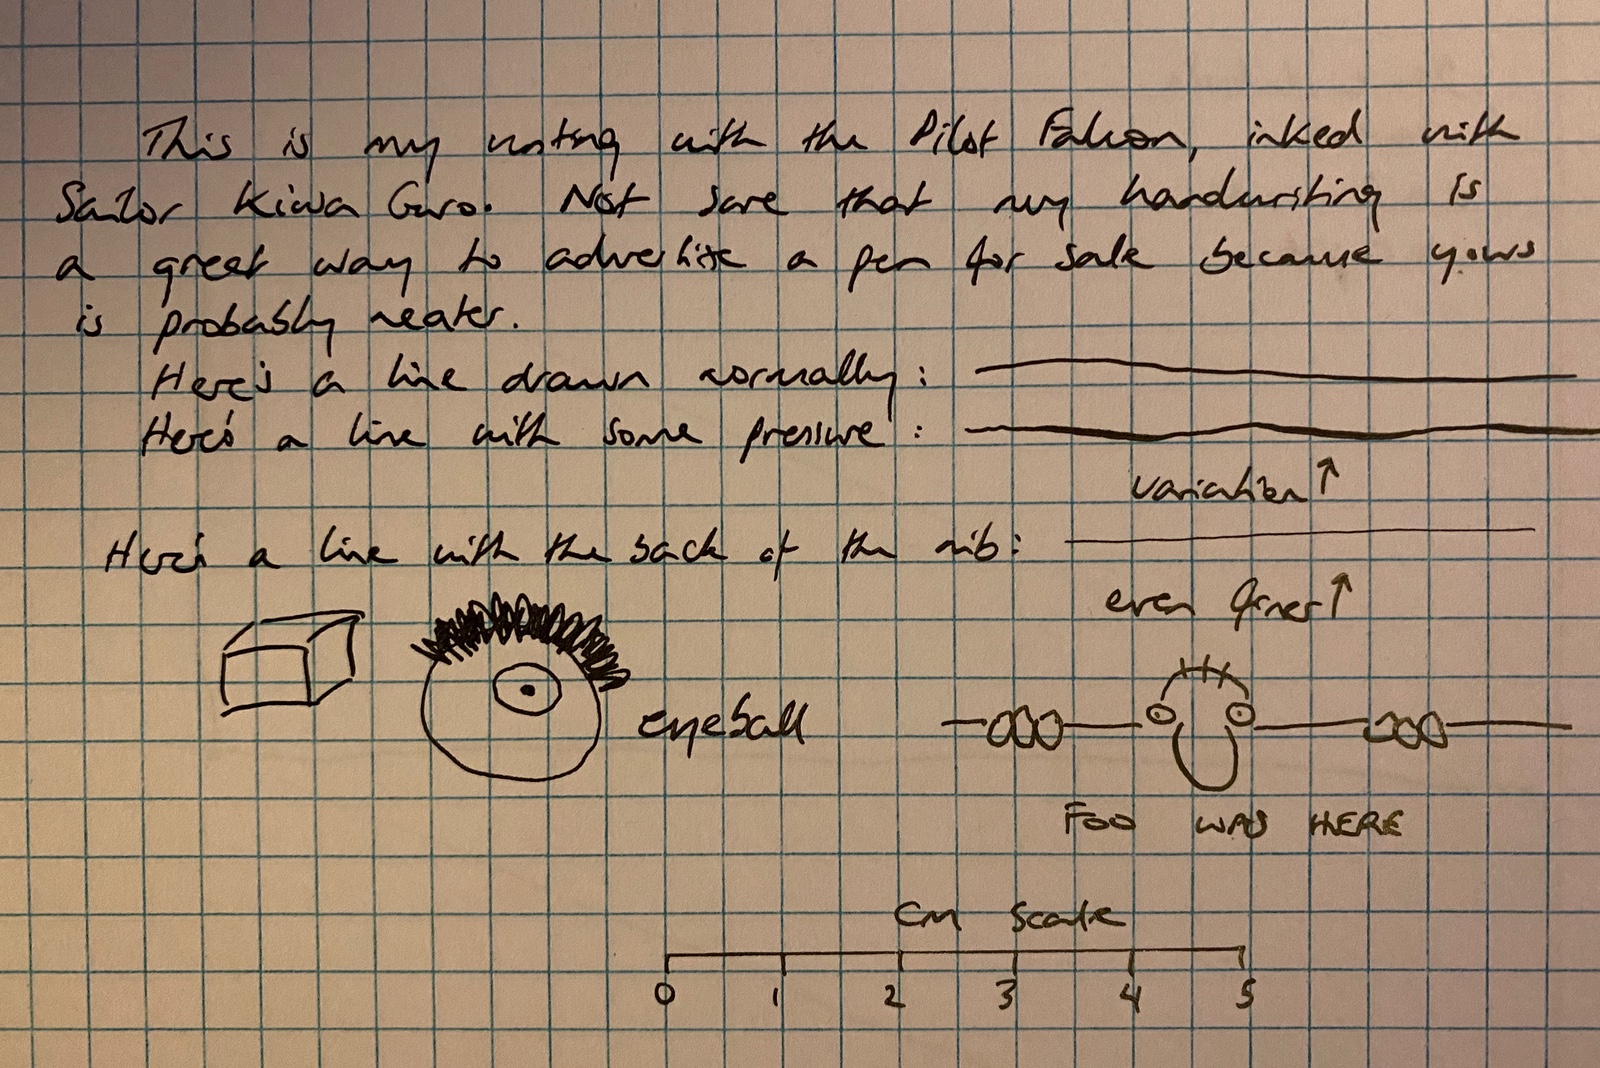 This is my writing with the Pilot Falcon, inked with
Sailor Kiwa Guro. Not sure that my handwriting is
a great way to advertise a pen for sale because yours
is probably neater.
Here's a line drawn normally:
Here's a line with some pressure:
variation↑
Here's a line with the back of the nib:
even finer↑
eyeball
FOO WAS HERE
cm scale
0 1 2 3 4 5